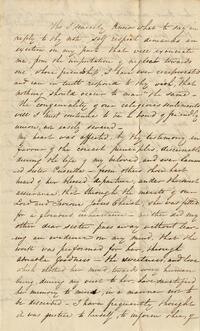 Tho I scarcely know what to say in
reply to thy note self respect demands an
exertion on my part that will exonerate
me from the imputation of neglect towards
one whose friendship I have ever reciprocated
and can in truth respond to thy wish that
nothing should occur to mar the same
the congeniality of our religious sentiments
will I trust continue to be a bond of friendship
union, not easily severed
my heart was affected by thy testimony in
favour of the correct principles, discernable
during the life of my beloved and ever lamented
Sister - from others there have
since her departure, under the
assurance, that through the merits of our
Lord and Saviour Jesus Christ, she was fitted
for a glorious inheritance - neither did my
other dear sister pass away without leav-
ing an evidence on my mind, that the
work was performed for her, through
amiable goodness - the sweetness and love
which clothed her mind towards every human
being during my visit to her has
her memory to mind in a manner not to
be described - I have frequently thought
it was justice to herself to inform thee of